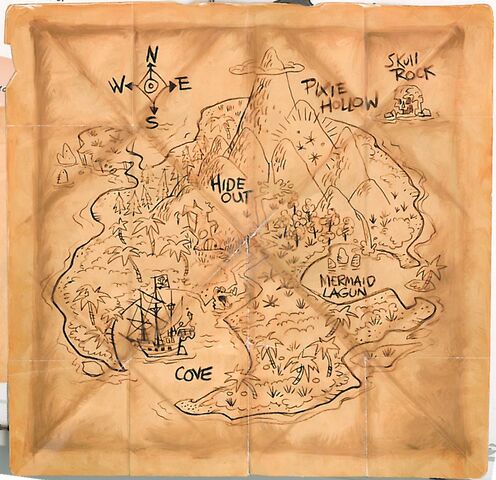 N
W E
S
SKUll
ROCK
PIXIE
HOLLOW
HIDE
OUT
MERMAID
LAGUN
COVE